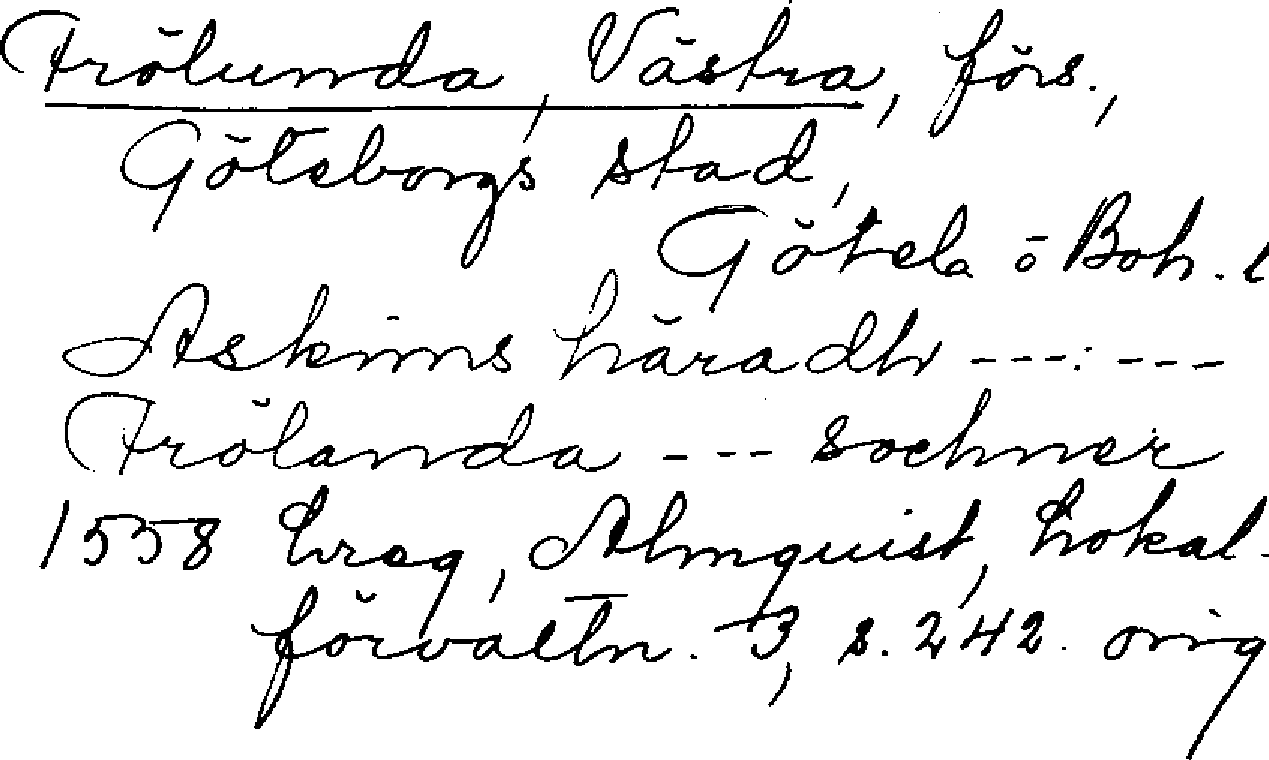 Frölunda, Västra, förs.,
Göteborgs stad,
Göteb ō Boh. l
Askims häradh ---:---
Frölanda --- sochner
1558 hreg, Almquist, Lokal-
förvaltn. 3, s. 242. orig